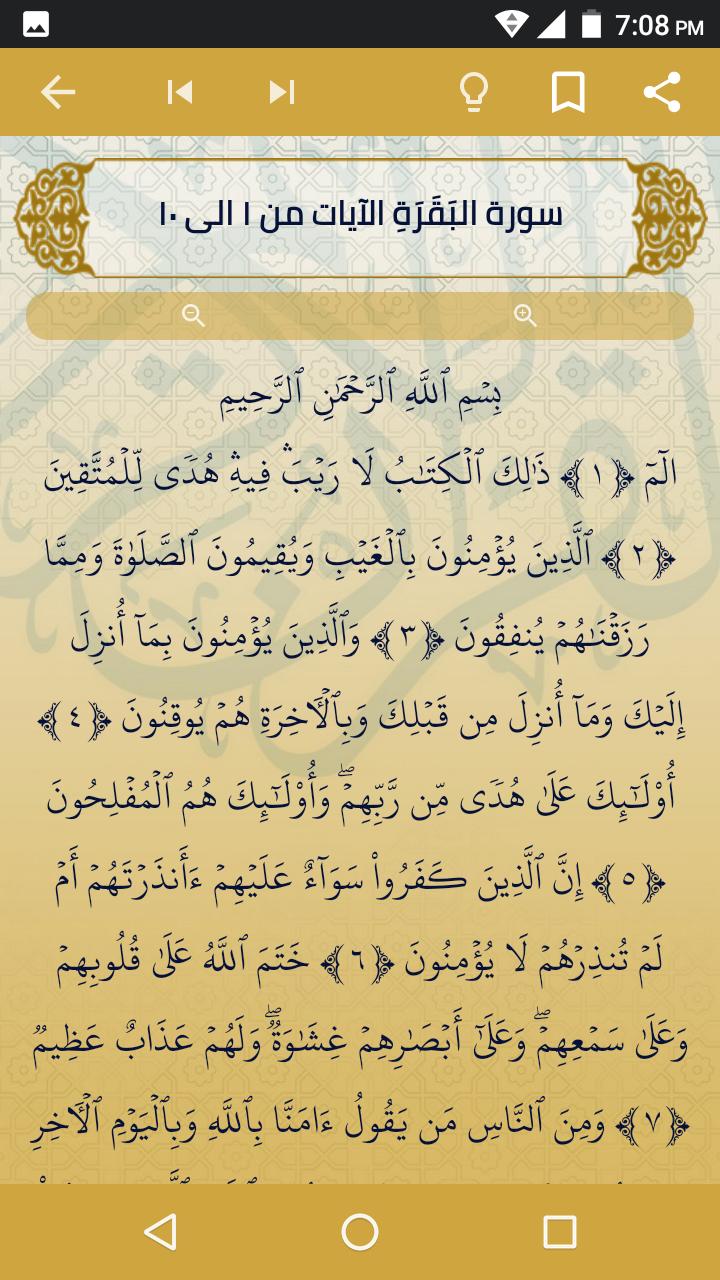 7:08 PM
سورة البَقَرَةِ الآيات من ١ الى ١٠
بِسْمِ ٱللَّهِ ٱلرَّحْمَٰنِ ٱلرَّحِيمِ
الٓمٓ ﴿١﴾ ذَٰلِكَ ٱلْكِتَٰبُ لَا رَيْبَ ۛ فِيهِ ۛ هُدًى لِّلْمُتَّقِينَ
﴿٢﴾ ٱلَّذِينَ يُؤْمِنُونَ بِٱلْغَيْبِ وَيُقِيمُونَ ٱلصَّلَوٰةَ وَمِمَّا
رَزَقْنَٰهُمْ يُنفِقُونَ ﴿٣﴾ وَٱلَّذِينَ يُؤْمِنُونَ بِمَآ أُنزِلَ
إِلَيْكَ وَمَآ أُنزِلَ مِن قَبْلِكَ وَبِٱلْءَاخِرَةِ هُمْ يُوقِنُونَ ﴿٤﴾
أُو۟لَٰٓئِكَ عَلَىٰ هُدًى مِّن رَّبِّهِمْ ۖ وَأُو۟لَٰٓئِكَ هُمُ ٱلْمُفْلِحُونَ
﴿٥﴾ إِنَّ ٱلَّذِينَ كَفَرُوا۟ سَوَآءٌ عَلَيْهِمْ ءَأَنذَرْتَهُمْ أَمْ
لَمْ تُنذِرْهُمْ لَا يُؤْمِنُونَ ﴿٦﴾ خَتَمَ ٱللَّهُ عَلَىٰ قُلُوبِهِمْ
وَعَلَىٰ سَمْعِهِمْ ۖ وَعَلَىٰٓ أَبْصَٰرِهِمْ غِشَٰوَةٌ ۖ وَلَهُمْ عَذَابٌ عَظِيمٌ
﴿٧﴾ وَمِنَ ٱلنَّاسِ مَن يَقُولُ ءَامَنَّا بِٱللَّهِ وَبِٱلْيَوْمِ ٱلْءَاخِرِ